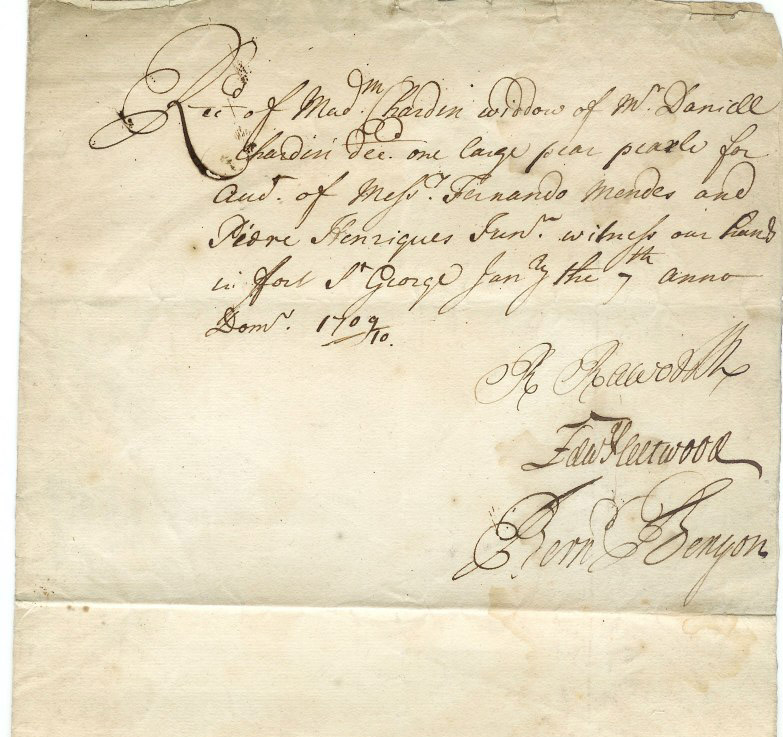 Recd. of Madm. Chardin widdow of Mr. Daniell
Chardin Decd. one large pear pearle for
Accot. of Messrs. Fernando Mendes and
Piere Henriques Junr. witness our hands
in fort St George Janry the 7th anno
Domi. 1709/10.
R Raworth
Edwd Fleetwood
Bernd Benyon